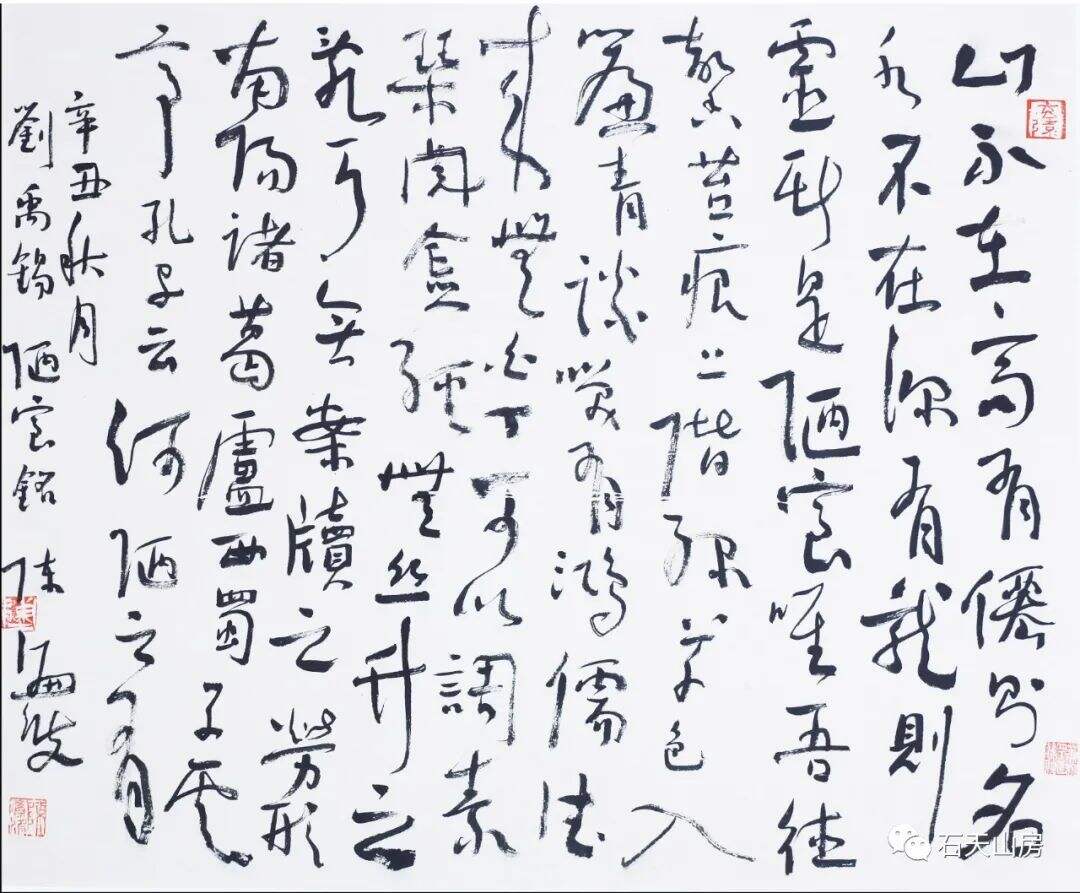 山不在高有僊則名
水不在深有龍則
靈斯是陋室唯吾德
馨苔痕上階綠草色入
簾青談笑有鴻儒往
來無白丁可以調素
琴閱金經無絲竹之
亂耳無案牘之勞形
南陽諸葛廬西蜀子雲
亭孔子云何陋之有
辛丑秋月
劉禹錫陋室銘 陳
石天山房